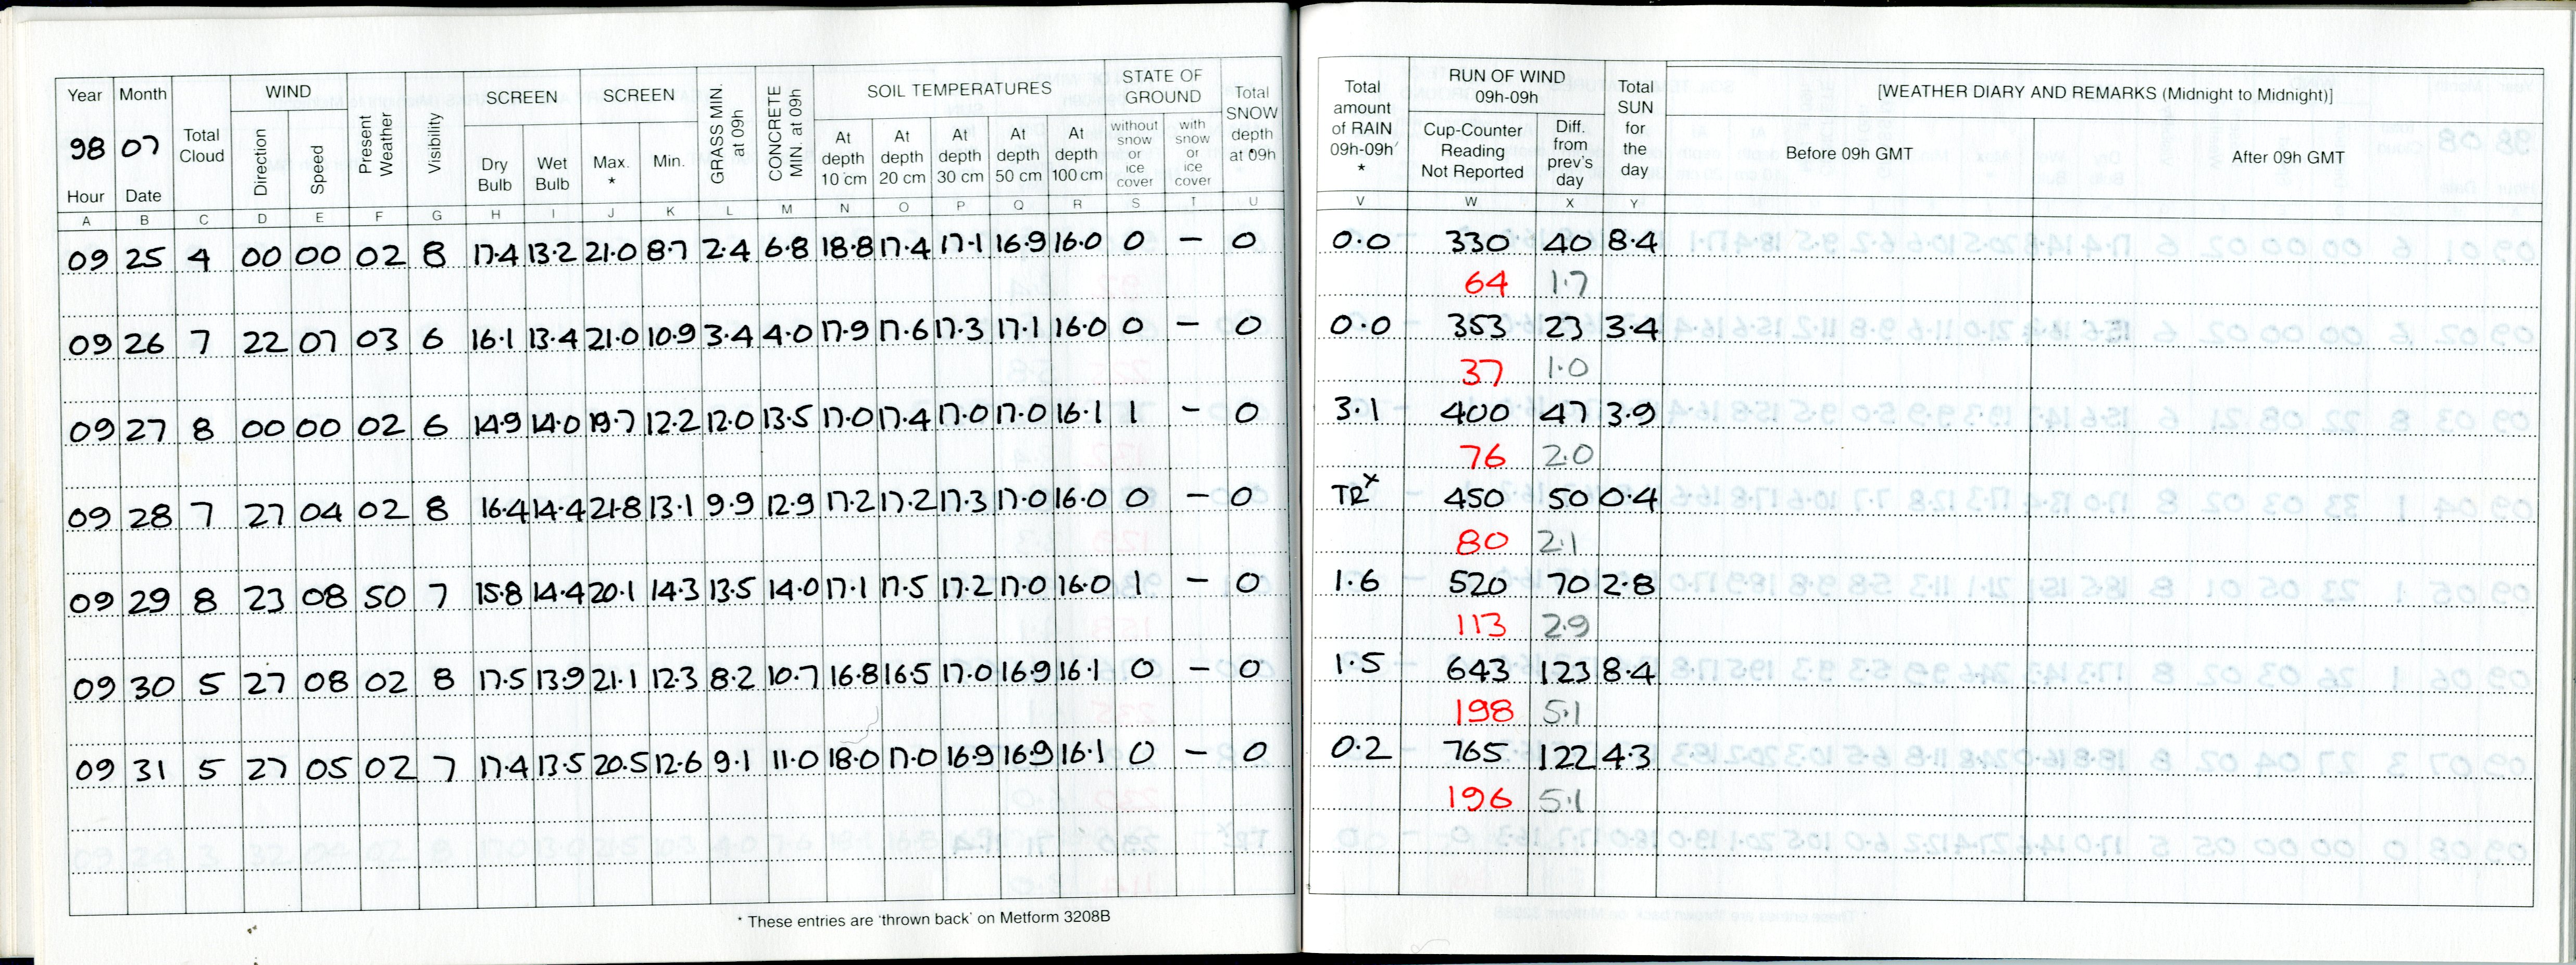 Year Month Total Cloud WIND Present Weather Visibility SCREEN SCREEN GRASS MIN. at 09h CONCRETE MIN. at 09h SOIL TEMPERATURES STATE OF GROUND Total SNOW depth at 09h
98 07 Direction Speed Dry Bulb Wet Bulb Max. * Min. At depth 10 cm At depth 20 cm At depth 30 cm At depth 50 cm At depth 100 cm without snow or ice cover with snow or ice cover
Hour Date
A B C D E F G H I J K L M N O P Q R S T U
09 25 4 00 00 02 8 17.4 13.2 21.0 8.7 2.4 6.8 18.8 17.4 17.1 16.9 16.0 0 – 0
09 26 7 22 07 03 6 16.1 13.4 21.0 10.9 3.4 4.0 17.9 17.6 17.3 17.1 16.0 0 – 0
09 27 8 00 00 02 6 14.9 14.0 19.7 12.2 12.0 13.5 17.0 17.4 17.0 17.0 16.1 1 – 0
09 28 7 27 04 02 8 16.4 14.4 21.8 13.1 9.9 12.9 17.2 17.2 17.3 17.0 16.0 0 – 0
09 29 8 23 08 50 7 15.8 14.4 20.1 14.3 13.5 14.0 17.1 17.5 17.2 17.0 16.0 1 – 0
09 30 5 27 08 02 8 17.5 13.9 21.1 12.3 8.2 10.7 16.8 16.5 17.0 16.9 16.1 0 – 0
09 31 5 27 05 02 7 17.4 13.5 20.5 12.6 9.1 11.0 18.0 17.0 16.9 16.9 16.1 0 – 0
* These entries are 'thrown back' on Metform 3208B
Total amount of RAIN 09h-09h * RUN OF WIND 09h-09h Total SUN for the day [WEATHER DIARY AND REMARKS (Midnight to Midnight)]
Cup-Counter Reading Not Reported Diff. from prev's day Before 09h GMT After 09h GMT
V W X Y
0.0 330 40 8.4
64 1.7
0.0 353 23 3.4
37 1.0
3.1 400 47 3.9
76 2.0
TRx 450 50 0.4
80 2.1
1.6 520 70 2.8
113 2.9
1.5 643 123 8.4
198 5.1
0.2 765 122 4.3
196 5.1